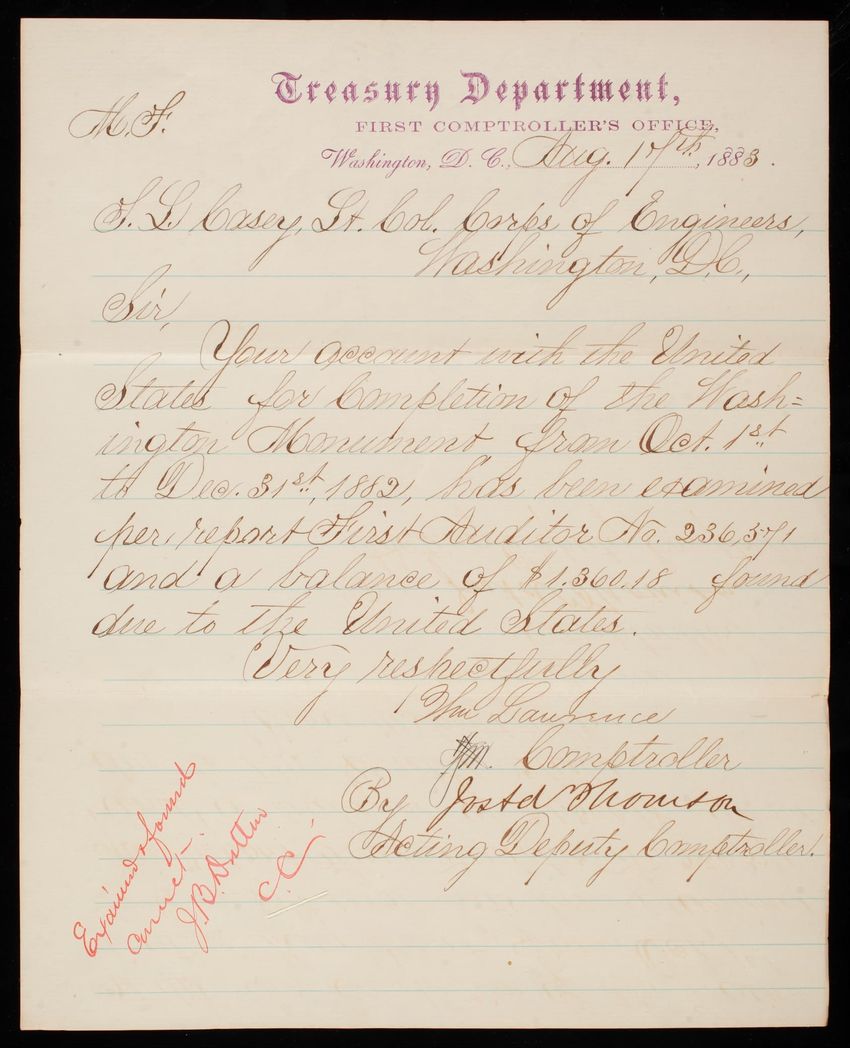 Treasury Department,
M. F.
FIRST COMPTROLLER'S OFFICE,
Washington, D. C., Aug. 17th, 1883.
T. L. Casey, Lt. Col. Corps of Engineers,
Washington, D.C.,
Sir,
Your account with the United
States for Completion of the Wash=
ington Monument from Oct. 1st
to Dec. 31st, 1882, has been examined
per report First Auditor No. 236,571
and a balance of $1.360.18 found
due to the United States.
Very respectfully
Wm Lawrence
Comptroller
By Jos Thomson
Acting Deputy Comptroller.
Examined & found
correct
J. B. Dutton
C.C.